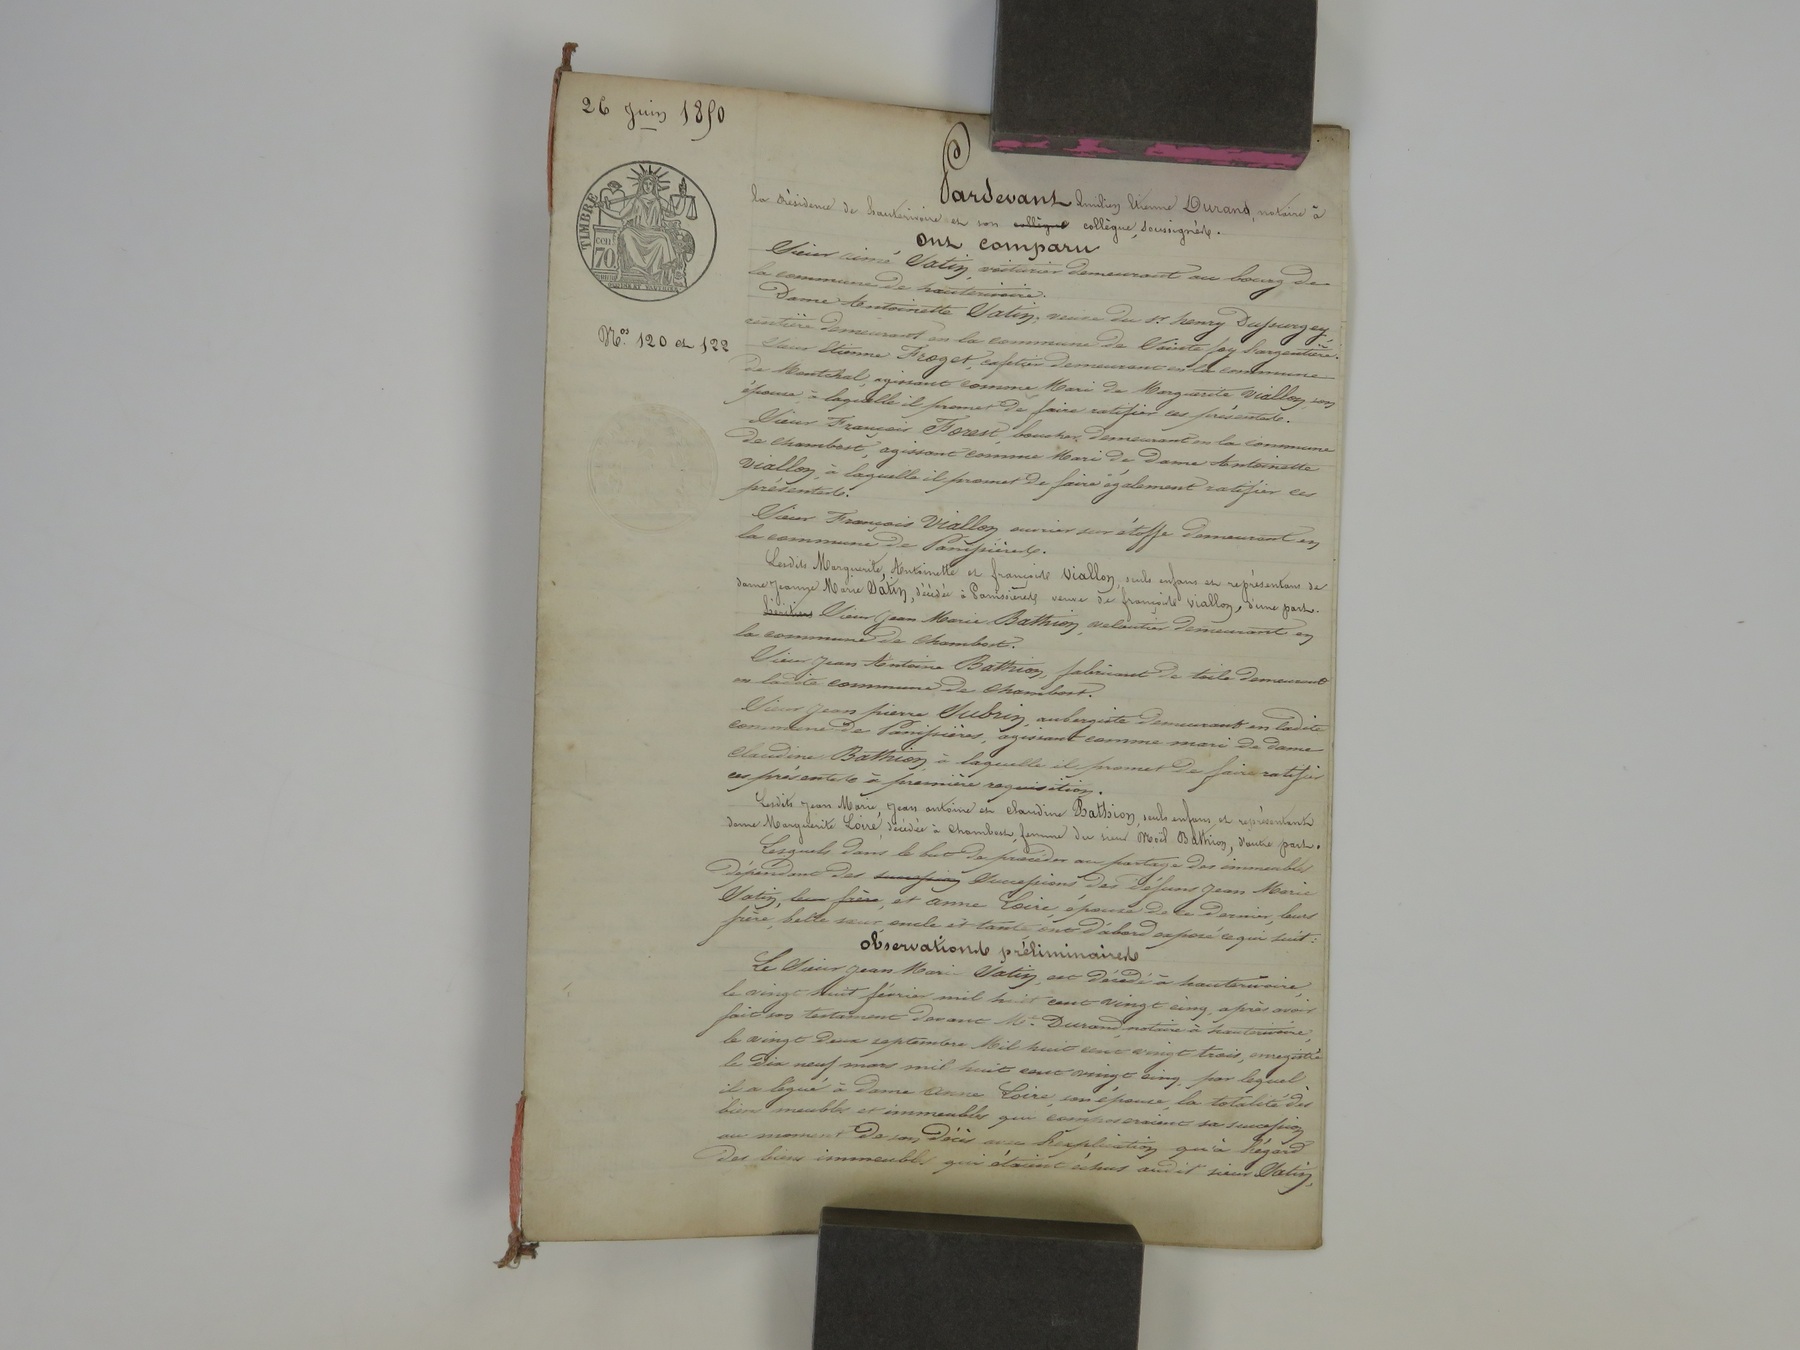 26 juin 1850
TIMBRE
cen 70
Nos. 120 et 122
Pardevant Emilien Etienne Durand, notaire à
la résidence de hauterivoire et son collègue collègue, soussignés.
ont comparu
Sieur aimé Satin, voiturier demeurant au bourg de
la commune de hauterivoire.
Dame Antoinette Satin, veuve du sr. henry Dufourgey,
demeurant en la commune de Sainte foy l'argentière.
Sieur Etienne Froget, demeurant en la commune
de Montchal, agissant comme Mari de Marguerite Viallon, son
épouse, à laquelle il promet de faire ratifier ces présentes.
Sieur François Forest, boucher, demeurant en la commune
de Chambost, agissant comme Mari de Dame Antoinette
Viallon, à laquelle il promet de faire également ratifier ces
présentes.
Sieur François Viallon, ouvrier sur étoffe demeurant en
la commune de Panissières.
Lesdits Marguerite, Antoinette et françois Viallon, seuls enfans et représentans de
dame jeanne Marie Satin, décédée à Panissières veuve de françois Viallon, d'une part.
héritiers Sieur jean Marie Bathion, veloutier demeurant en
la commune de Chambost.
Sieur jean Antoine Bathion, fabricant de toile demeurant
en ladite commune de Chambost.
Sieur jean pierre Subrin, aubergiste demeurant en ladite
commune de Panissières, agissant comme mari de dame
Claudine Bathion à laquelle il promet de faire ratifier
ces présentes à première requisition.
Lesdits jean Marie, jean antoine et claudine Bathion, seuls enfans et représentants
dame Marguerite Loire, décédée à Chambost, femme du sieur Noël Bathion, d'autre part.
Lesquels dans le but de procéder au partage des immeubles
dépendant des succession Successions des défuns jean Marie
Satin, leur frère, et anne Loire, épouse de ce dernier, leurs
frère, belle soeur, oncle et tante ont d'abord exposé ce qui suit:
observations préliminaires
Le Sieur jean Marie Satin, est décédé à hauterivoire,
le vingt huit février mil huit cent vingt cinq, après avoir
fait son testament devant Me. Durand, notaire à hauterivoire,
le vingt deux septembre Mil huit cent vingt trois, enregistré
le dix neuf mars mil huit cent vingt cinq, par lequel
il a légué à dame anne Loire, son épouse, la totalité des
biens meubles et immeubles qui composeraient sa succession
au moment de son décès avec l'explication qu'à l'égard
des biens immeubles qui étaient échus audit sieur Satin,